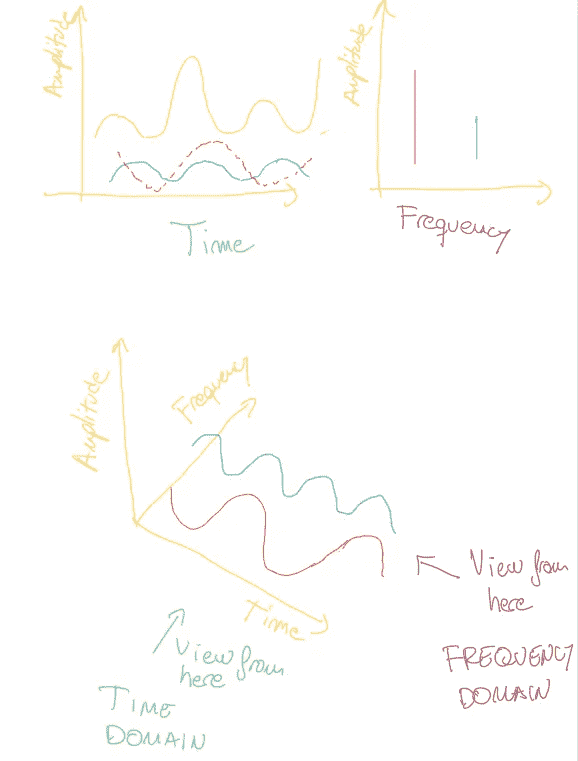 Amplitude
Time
Amplitude
Frequency
Amplitude
Frequency
Time
View from
here
TIME
DOMAIN
View from
here
FREQUENCY
DOMAIN